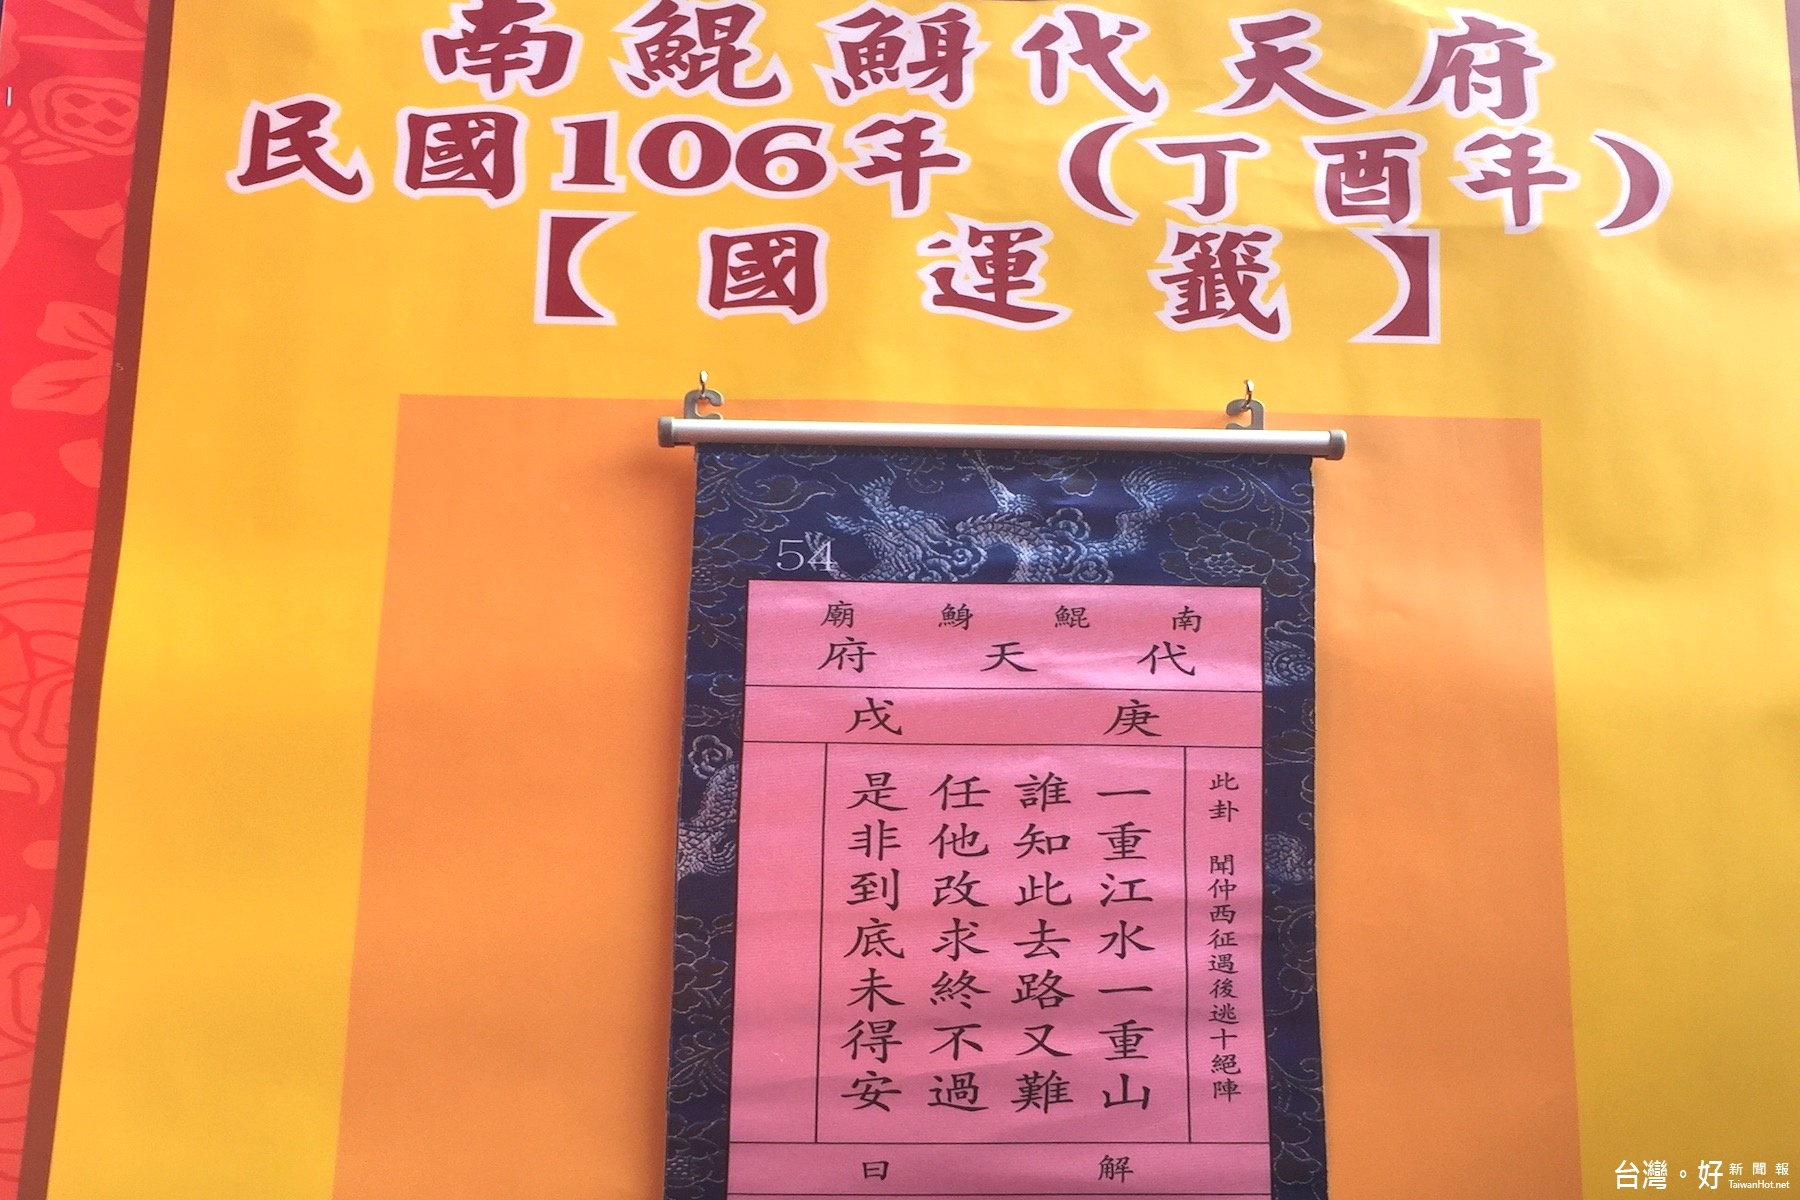 南鯤鯓代天府
民國106年（丁酉年）
【國運籤】
54
南鯤鯓廟
代天府
庚戌
此卦 聞仲西征遇後逃十絕陣
一重江水一重山
誰知此去路又難
任他改求終不過
是非到底未得安
解曰
台灣。好新聞報
TaiwanHot.net